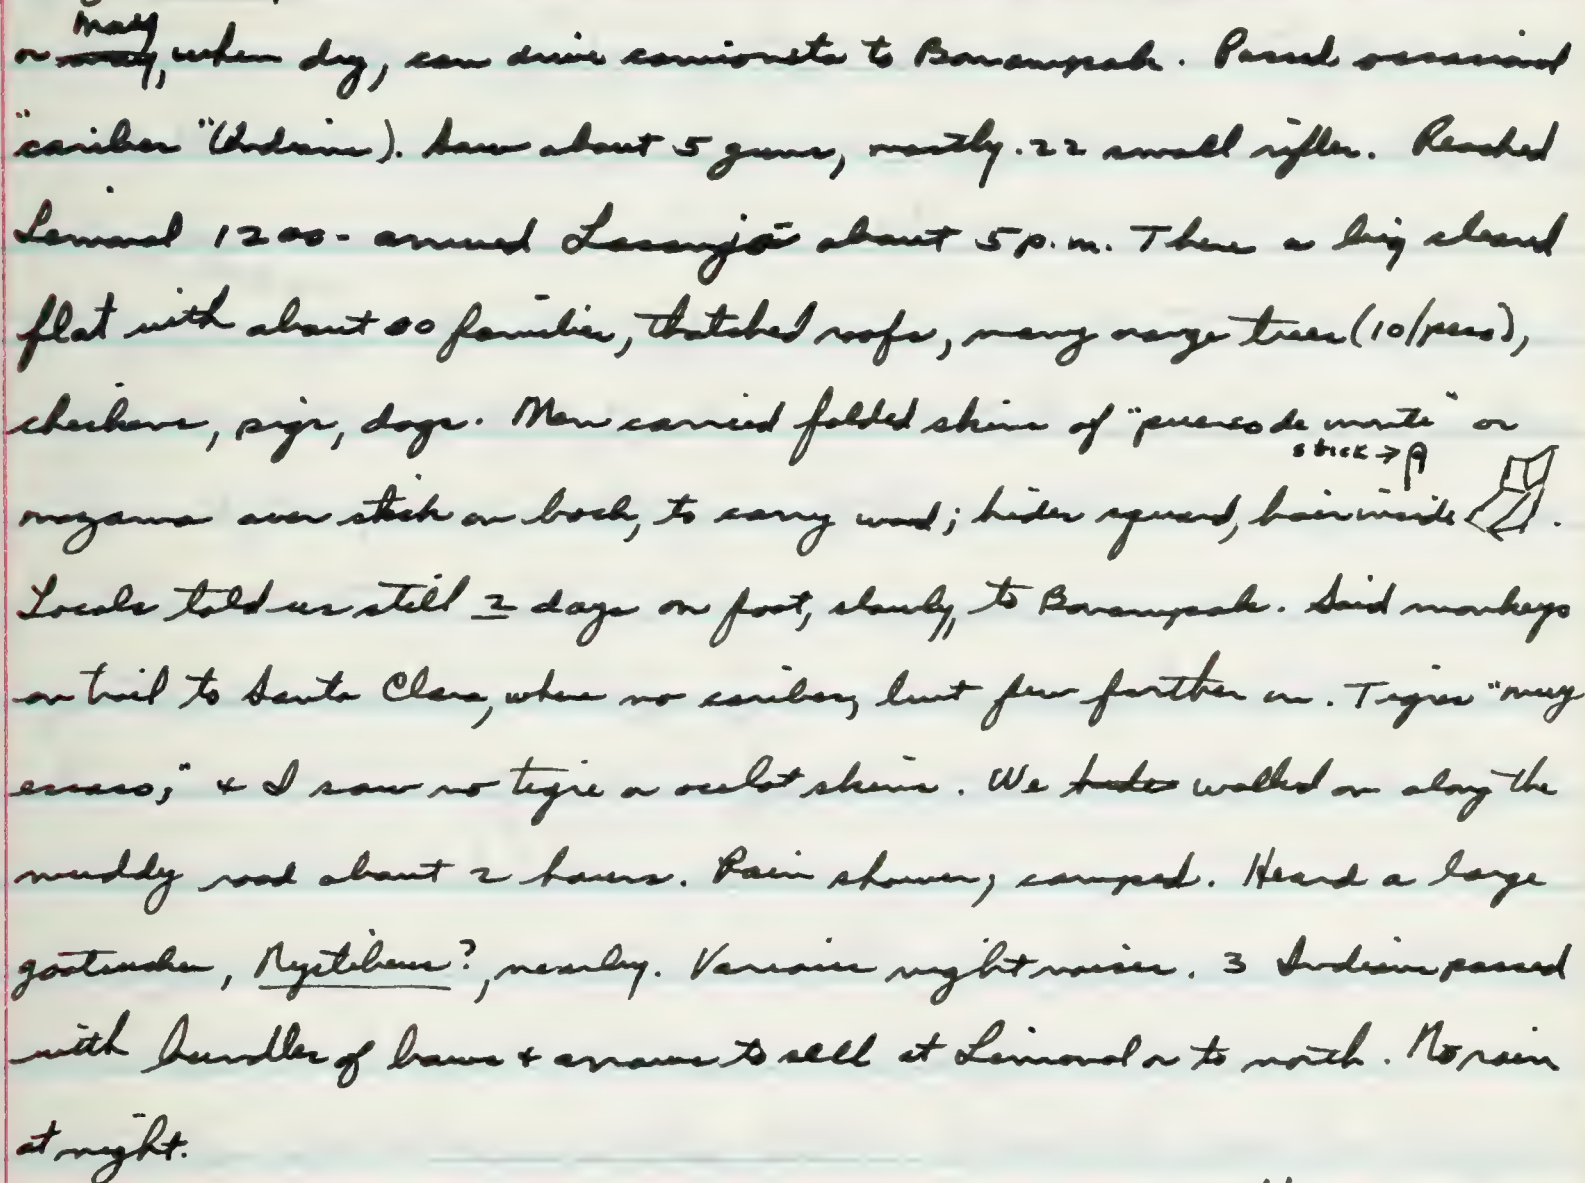 or may, when dry, can drive camioneta to Bonampak. Passed occasional
"caribes" (Indians). Saw about 5 guns, mostly .22 small rifles. Reached
Limonal 1200 - arrived Lacanjá about 5 p.m. There a big cleared
flat with about families, thatched roofs, many orange trees (10/peso),
chickens, pigs, dogs. Men carried folded skins of "puerco de monte" or
stick →
mazama over stick on back, to carry wood; hides squared, hair inside .
Locals told us still 2 days on foot, slowly, to Bonampak. Said monkeys
on trail to Santa Clara, where no caribes, but few further on. Tigres "muy
escaso," & I saw no tigre or ocelot skins. We walked on along the
muddy road about 2 hours. Rain shower, camped. Heard a large
goatsucker, Nyctibeus?, nearby. Various night noises. 3 Indians passed
with bundles of bows & arrows to sell at Limonal or to north. No rain
at night.